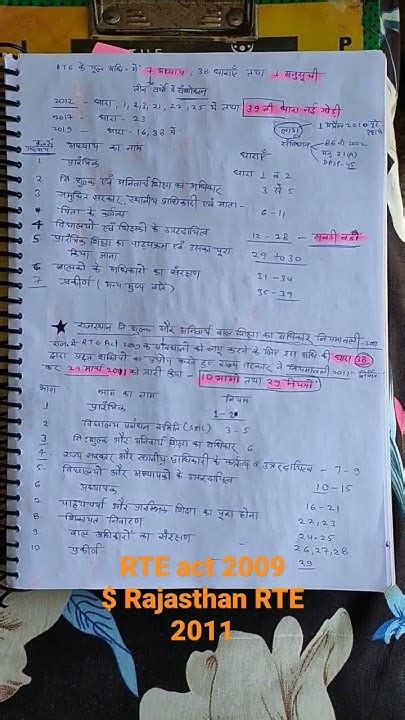 RTE के मूल अधि॰ में 7 अध्याय, 38 धाराएँ तथा 1 अनुसूची
तीन वर्षों में संशोधन
2012 - धारा, 1, 2, 3, 21, 22, 25 में तथा 39 वी धारा नई जोड़ी
2017 - धारा - 23
2019 - धारा - 16, 38 में
लागू
1 अप्रैल 2010 पूरे
संविधान
86 वाँ 2002
अनु 21(A)
DPSP-45
अध्याय का नाम
धाराएँ
1 प्रारंभिक धारा 1 व 2
2 नि:शुल्क एवं अनिवार्य शिक्षा का अधिकार 3 से 5
3 समुचित सरकार, स्थानीय प्राधिकारी एवं माता-
पिता के कर्त्तव्य 6-11
4 विद्यालयों एवं शिक्षकों के उत्तरदायित्व 12-28 - सबसे बड़ी
5 प्रारंभिक शिक्षा का पाठ्यक्रम एवं उसका पूरा
किया जाना 29 to 30
6 बालकों के अधिकारों का संरक्षण 31-34
7 प्रकीर्ण (अन्य मुख्य बातें) 35-39
★ राजस्थान नि:शुल्क और अनिवार्य बाल शिक्षा का अधिकार नियमावली-2011
राज॰ में RTE Act 2009 के प्रावधानों को लागू करने के लिए इस अधि॰ की धारा 38
द्वारा प्रदत्त शक्तियों का प्रयोग करते हुए राज्य सरकार ने नियमावली 2011
कर 29 मार्च 2011 को जारी किया - 10 भागों तथा 29 नियमों
भाग भाग का नाम नियम
1 प्रारंभिक 1-2
2 विद्यालय प्रबंधन समिति (SMC) 3-5
3 नि:शुल्क और अनिवार्य शिक्षा का अधिकार 6
4- राज्य सरकार और स्थानीय प्राधिकारी के कर्त्तव्य व उत्तरदायित्व - 7-9
5- विद्यालयों और अध्यापकों के उत्तरदायित्व 10-15
6 अध्यापक 16-21
7 पाठ्यचर्या और प्रारम्भिक शिक्षा का पूरा होना 22,23
8 शिकायत निवारण 24-25
9- बाल अधिकारों का संरक्षण 26,27,28
10 प्रकीर्ण 29
RTE act 2009
$ Rajasthan RTE
2011